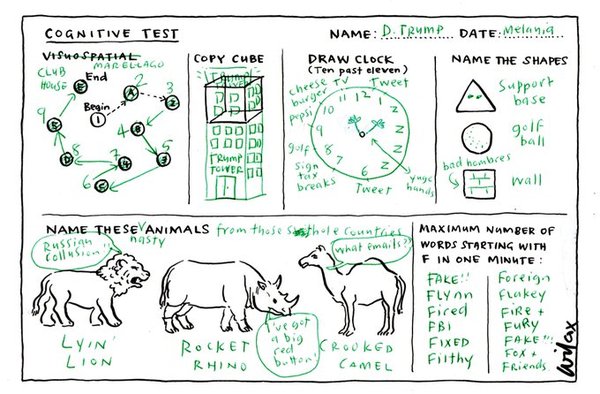 COGNITIVE TEST
NAME: D. TRUMP DATE: Melania
VISUOSPATIAL
MARELLAGO
CLUB
HOUSE
End
Begin
1
A
2
B
3
4
C
D
5
E
2
3
4
5
6
7
8
9
COPY CUBE
TRUMP
TOWER
TRUMP
TOWER
DRAW CLOCK
(Ten past eleven)
Cheese TV
burger
pepsi
golf
sign
tax
breaks
Tweet
Tweet
yuge
hands
12
11
10
9
8
7
6
1
Z
Z
Z
Z
NAME THE SHAPES
Support
base
golf
ball
bad hombres
wall
NAME THESE ANIMALS from those sh*thole countries
nasty
Russian
collusion!!
what emails?
I've got
a big
red
button!
LYIN'
LION
ROCKET
RHINO
CROOKED
CAMEL
MAXIMUM NUMBER OF
WORDS STARTING WITH
F IN ONE MINUTE:
FAKE!!
FLYNN
Fired
FBI
FIXED
Filthy
Foreign
Flakey
FIRE +
FURY
FAKE!!!
FOX +
Friends
Wilcox